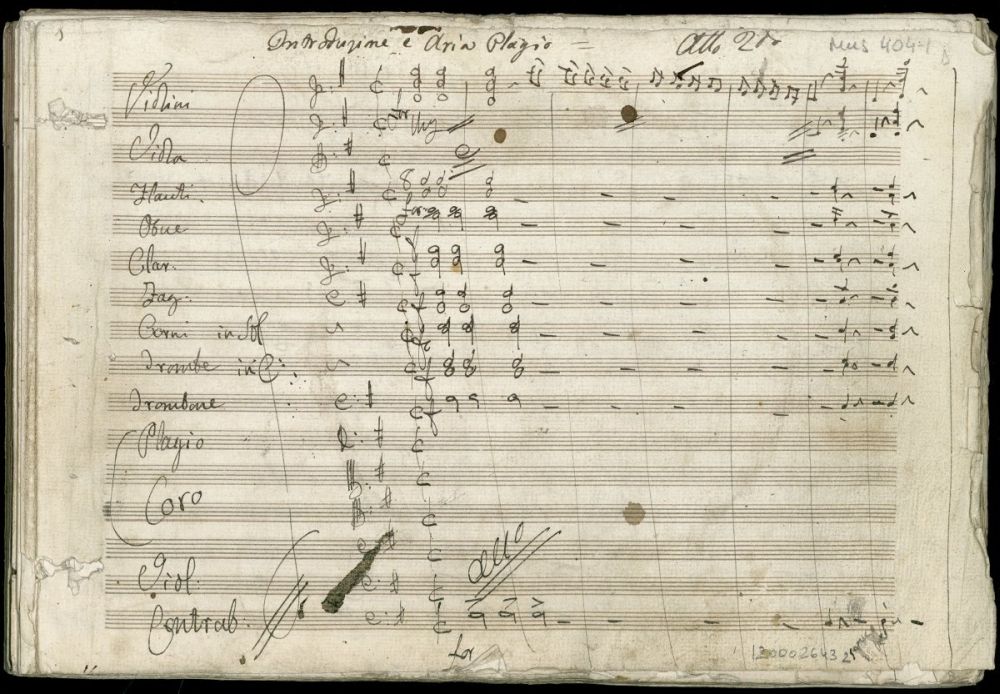 1 Introduzine e Aria Plagio = Atto 2do Mus 404-1
Violini
Viola
Flauti.
Oboe
for
Clar.
Fag.
Corni in Sol
Trombe in C:
Trombone
Plagio
Coro
Viol.
allo
Contrab.
for